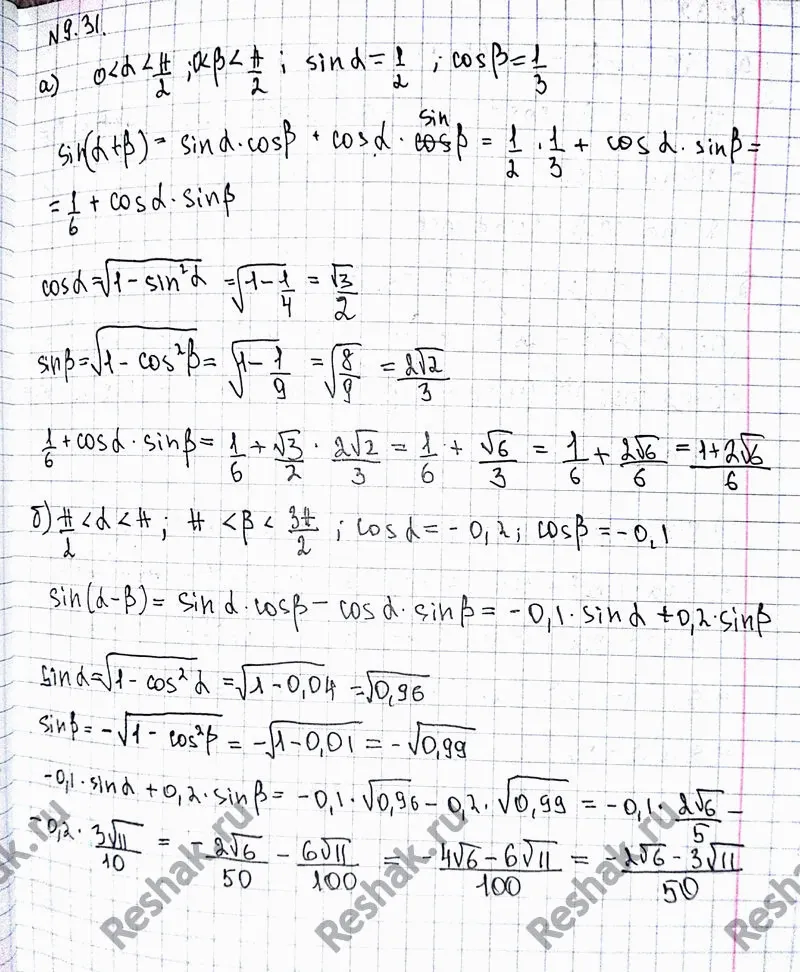 №9.31.
а) 0<α<π/2 ; 0<β<π/2 ; sinα=1/2 ; cosβ=1/3
sin(α+β)= sinα·cosβ + cosα· sin β = 1/2 · 1/3 + cosα·sinβ=
=1/6 + cosα·sinβ
cosα=√(1-sin²α) =√(1-1/4) = √3/2
sinβ=√(1-cos²β)= √(1-1/9) =√(8/9) = 2√2/3
1/6+cosα·sinβ= 1/6+√3/2 · 2√2/3 = 1/6 + √6/3 = 1/6 + 2√6/6 = (1+2√6)/6
б) π/2<α<π; π<β<3π/2 ; cosα=-0,2; cosβ=-0,1
sin(α-β)= sinα·cosβ-cosα·sinβ=-0,1·sinα+0,2·sinβ
sinα=√(1-cos²α) =√(1-0,04) =√0,96
sinβ=-√(1-cos²β) = -√(1-0,01) = -√0,99
-0,1·sinα+0,2·sinβ= -0,1·√0,96-0,2·√0,99 = -0,1·2√6/5 -
-0,2·3√11/10 = -2√6/50 - 6√11/100 = (-4√6-6√11)/100 = (-2√6-3√11)/50
Reshak.ru
Reshak.ru
Reshak.ru
Reshak.ru